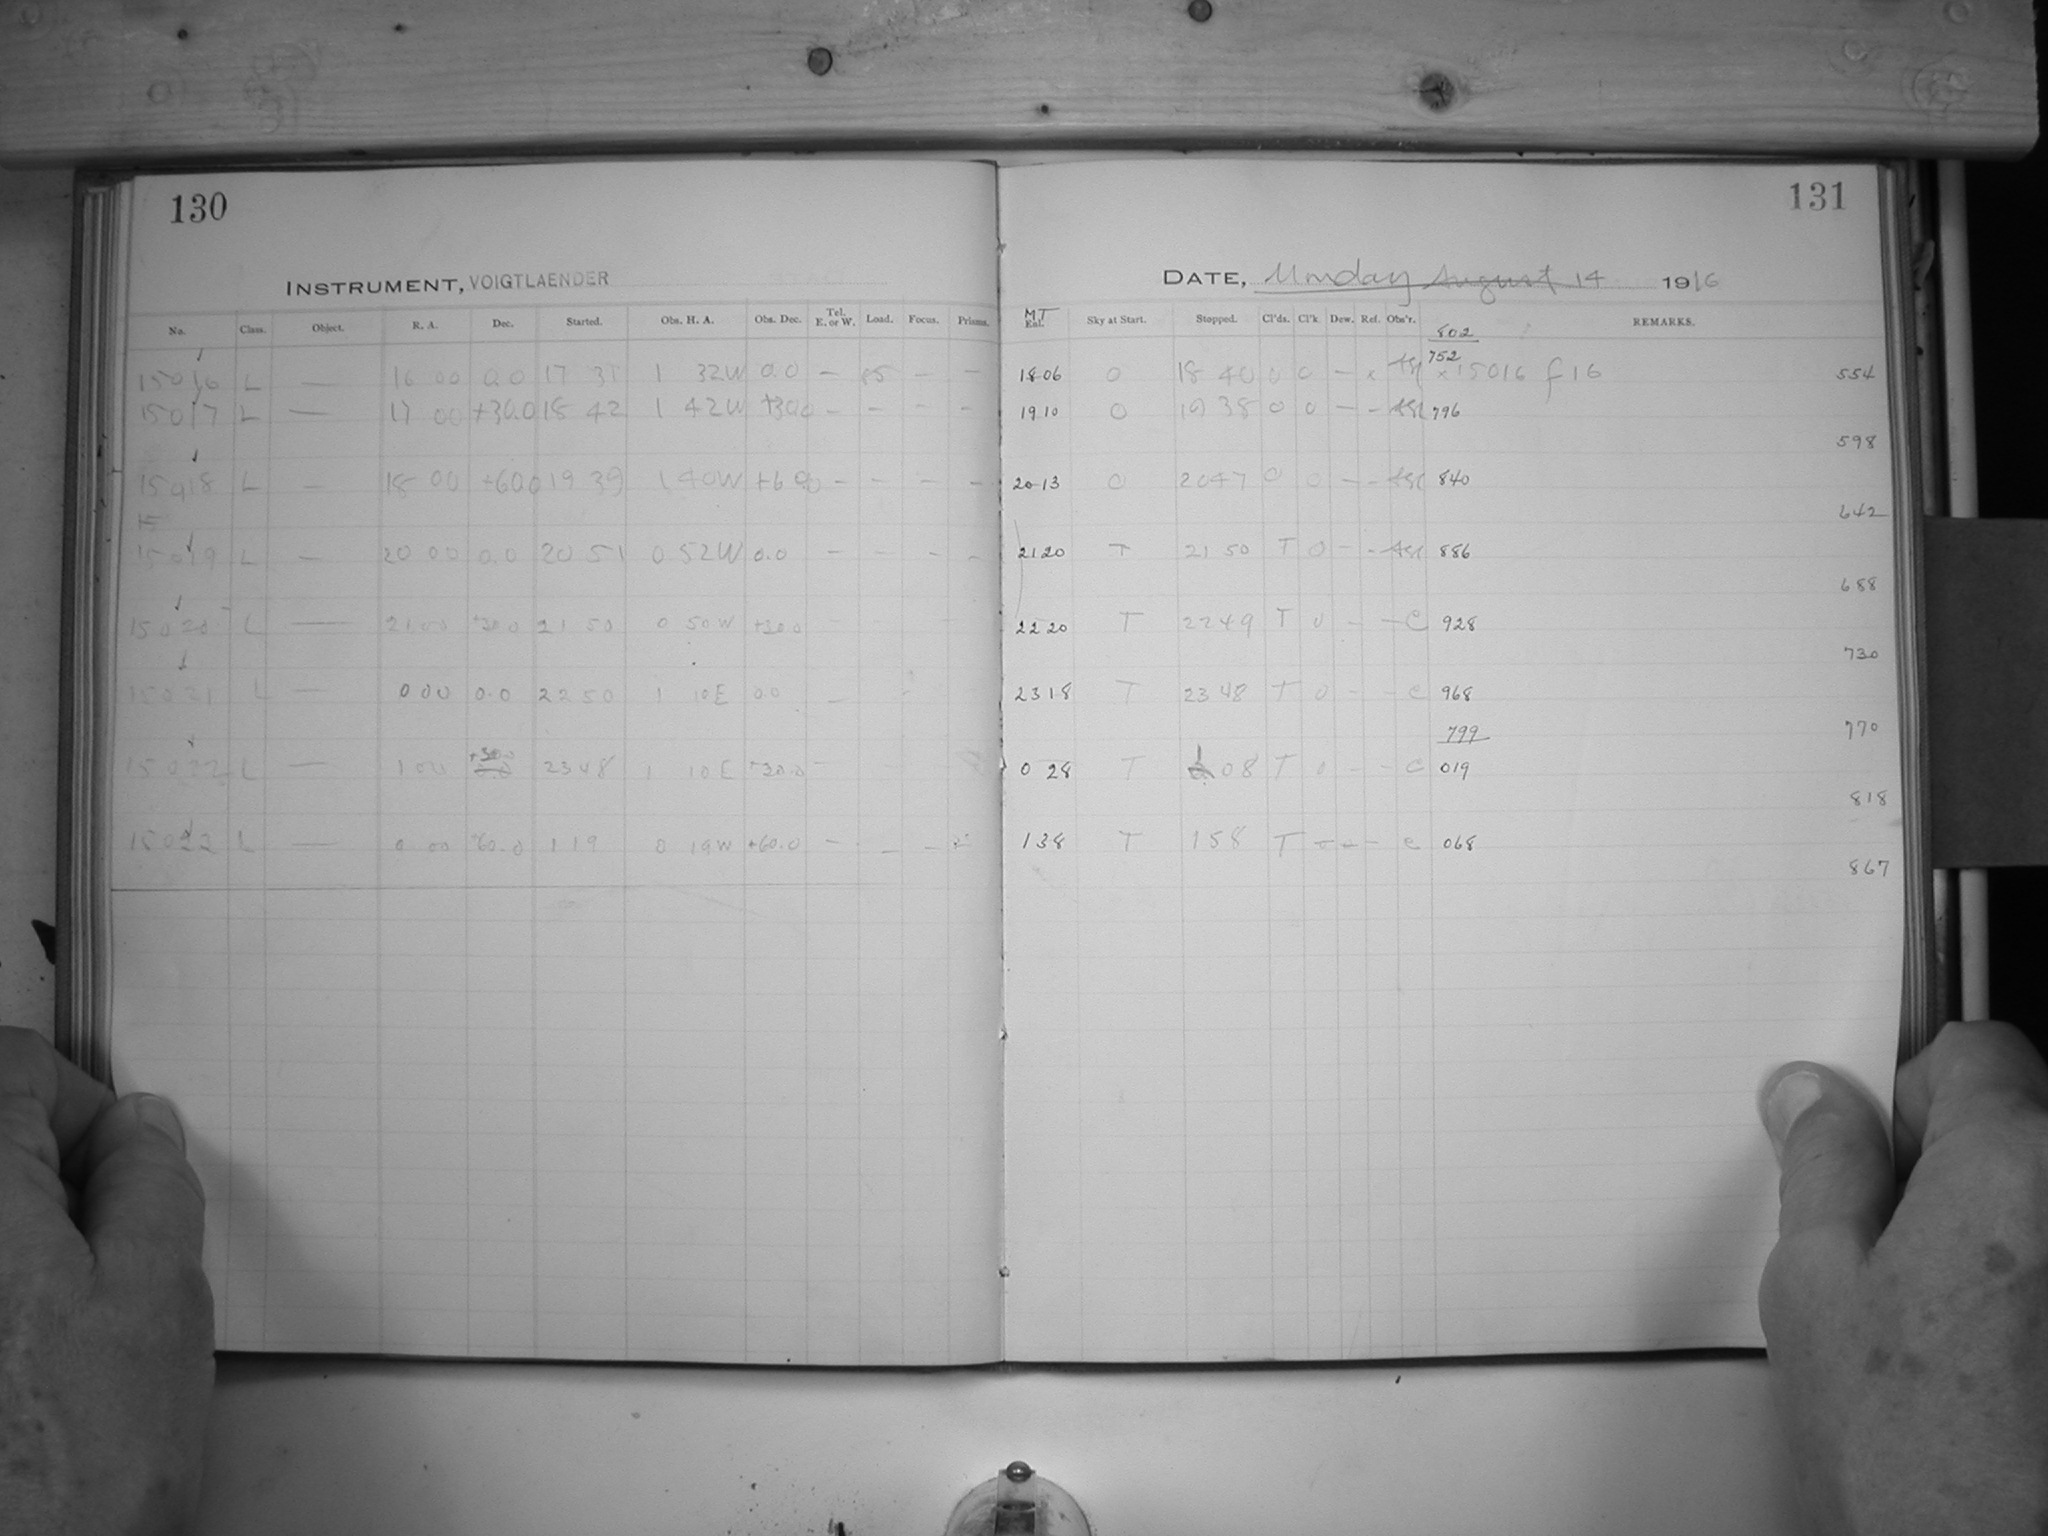 130
INSTRUMENT, VOIGTLAENDER
No. Class. Object. R. A. Dec. Started. Obs. H. A. Obs. Dec. Tel. E. or W. Load. Focus. Prisms.
15016 L — 16 00 0.0 17 31 1 32W 0.0 — — —
15017 L — 17 00 +30.0 18 42 1 42W +30.0 — — — —
15018 L — 18 00 +60.0 19 39 1 40W +60 — — — —
15019 L — 20 00 0.0 20 51 0 52W 0.0 — — — —
15020 L — 21 00 +30.0 21 50 0 50W +30.0
15021 L — 0 00 0.0 22 50 1 10E 0.0 —
15022 L — 1 00 +30.0 23 48 1 10E +30.0 —
L — 0 00 +60.0 1 19 0 19W +60.0 — — —
131
DATE, Monday August 14 1916
MT
Enl. Sky at Start. Stopped. Cl'ds. Cl'k. Dew. Ref. Obs'r. REMARKS.
802
752
18 06 0 18 40 0 0 — x x 15016 f16 554
19 10 0 19 38 0 0 — - 796
598
20 13 0 20 47 0 0 — - 840
642
21 20 T 21 50 T 0 — - 886
688
22 20 T 22 49 T 0 - — C 928
730
23 18 T 23 48 T 0 - - C 968
799 770
0 28 T 1 08 T 0 - - C 019
818
1 38 T 1 58 T - - - C 068
867